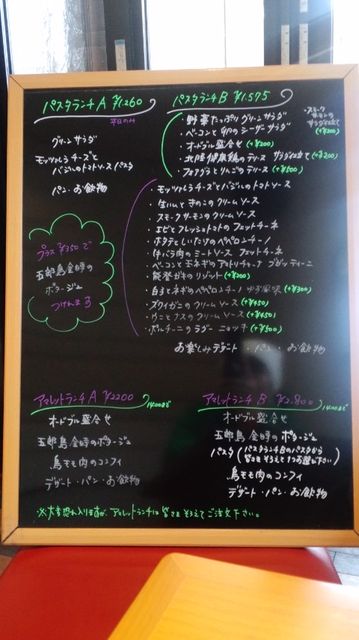 パスタランチA ¥1.260
平日のみ
グリーンサラダ
モッツァレラチーズと
バジルのトマトソースパスタ
パン・お飲物
プラス¥350で
五郎島金時の
ポタージュ
つけれます
パスタランチB ¥1.575
・野菜たっぷりグリーンサラダ
・ベーコンと卵のシーザーサラダ
・オードブル盛合せ (+¥200)
・北陸健康鶏のテリーヌ サラダ仕立て (+¥200)
・フォアグラとりんごのテリーヌ (+¥500)
・スモーク
サーモンの
サラダ仕立て
(+¥200)
・モッツァレラチーズとバジルのトマトソース
・生ハムときのこのクリームソース
・スモークサーモンのクリームソース
・エビとフレッシュトマトのフェットチーネ
・ホタテとしいたけのペペロンチーノ
・牛バラ肉のミートソース フェットチーネ
・ベーコンと玉ネギのアマトリチャーナ ブカティーニ
・能登カキのリゾット (+¥200)
・白子とネギのペペロンチーノ ゆず風味 (+¥300)
・ズワイガニのクリームソース (+¥450)
・ウニとナスのクリームソース (+¥450)
・ポルチーニのラグー ニョッキ (+¥500)
お楽しみデザート・パン・お飲物
アマレットランチA ¥2200
14:00まで
オードブル盛合せ
五郎島金時のポタージュ
鳥もも肉のコンフィ
デザート・パン・お飲物
アマレットランチB ¥2.800
14:00まで
オードブル盛合せ
五郎島金時のポタージュ
パスタ (パスタランチBのパスタから
皆さまそろえて1つお選び下さい)
鳥もも肉のコンフィ
デザート・パン・お飲物
※大変恐れ入りますが、アマレットランチは皆さまそろえてご注文下さい。